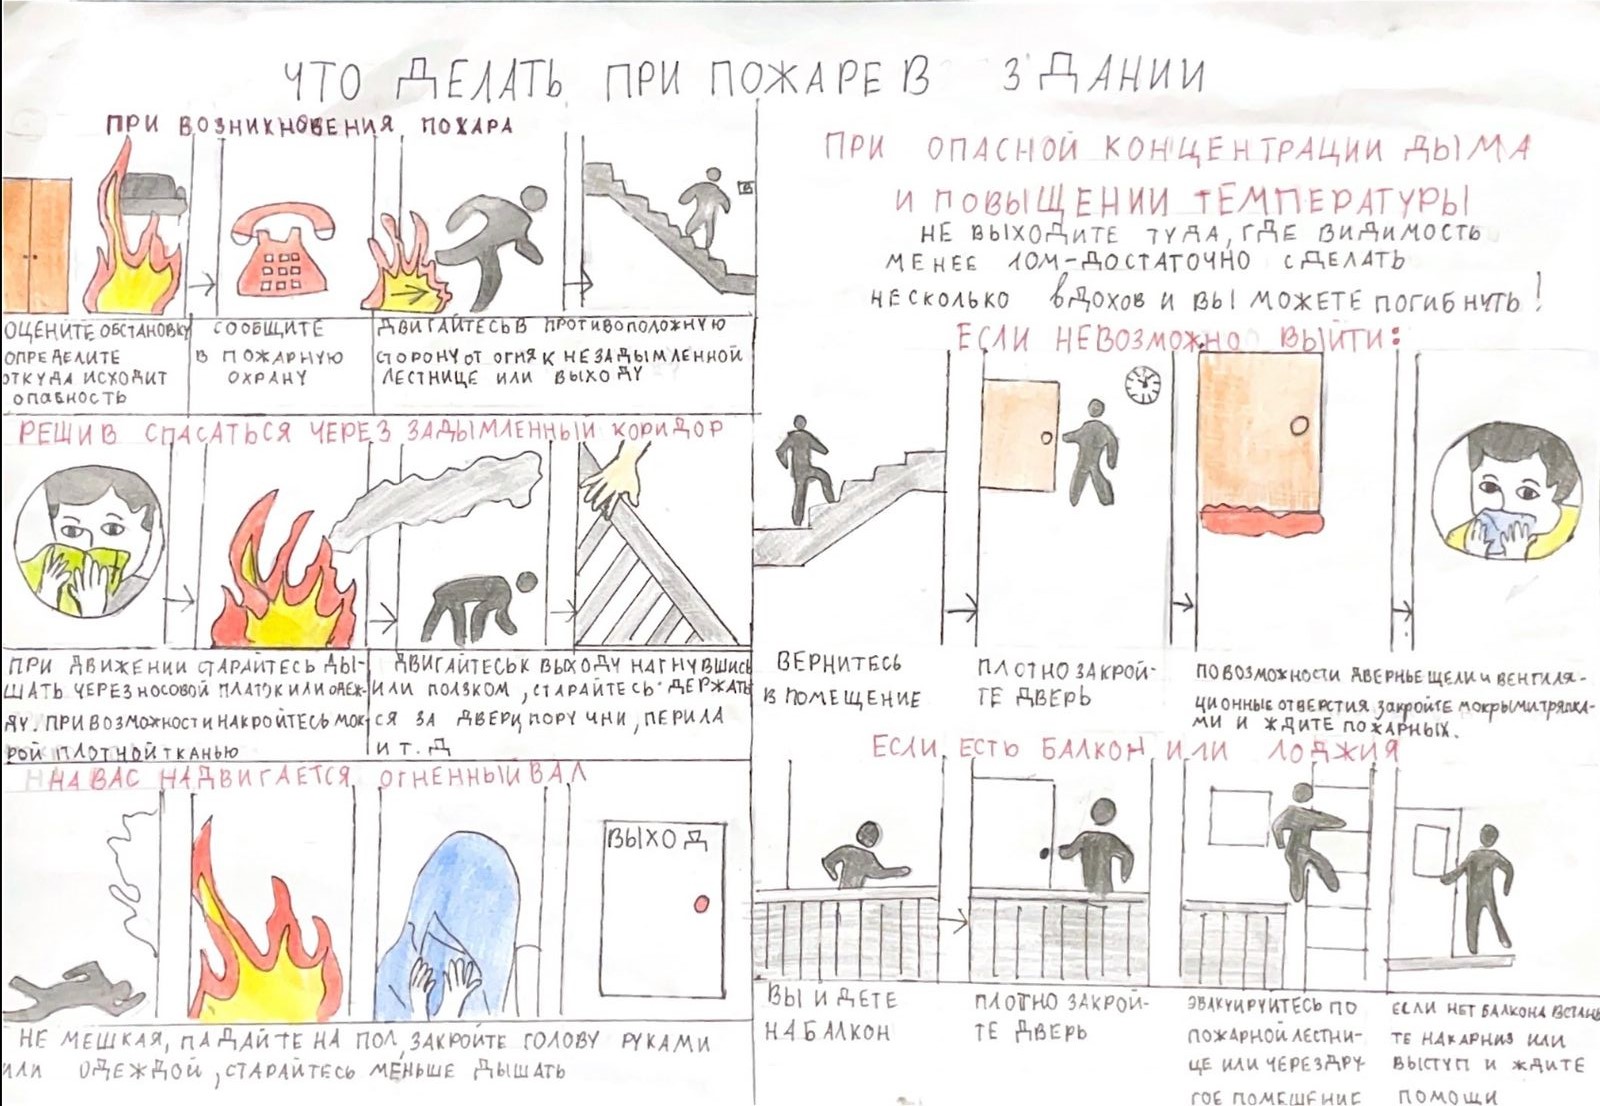 ЧТО ДЕЛАТЬ ПРИ ПОЖАРЕ В ЗДАНИИ
ПРИ ВОЗНИКНОВЕНИЯ ПОХАРА
ОЦЕНИТЕ ОБСТАНОВКУ
ОПРЕДЕЛИТЕ
ОТКУДА ИСХОДИТ
ОПАСНОСТЬ
СООБЩИТЕ
В ПОЖАРНУЮ
ОХРАНУ
ДВИГАЙТЕСЬ В ПРОТИВОПОЛОЖНУЮ
СТОРОНУ ОТ ОГНЯ К НЕЗАДЫМЛЕННОЙ
ЛЕСТНИЦЕ ИЛИ ВЫХОДУ
РЕШИВ СПАСАТЬСЯ ЧЕРЕЗ ЗАДЫМЛЕННЫЙ КОРИДОР
ПРИ ДВИЖЕНИИ СТАРАЙТЕСЬ ДЫ-
ШАТЬ ЧЕРЕЗ НОСОВОЙ ПЛАТОК ИЛИ ОДЕЖ-
ДУ. ПРИ ВОЗМОЖНОСТИ НАКРОЙТЕСЬ МОК-
РОЙ ПЛОТНОЙ ТКАНЬЮ
ДВИГАЙТЕСЬ К ВЫХОДУ НАГНУВШИСЬ
ИЛИ ПОЛЗКОМ, СТАРАЙТЕСЬ ДЕРЖАТЬ
СЯ ЗА ДВЕРИ, ПОРУЧНИ, ПЕРИЛА
И Т. Д
НА ВАС НАДВИГАЕТСЯ ОГНЕННЫЙ ВАЛ
ВЫХОД
НЕ МЕШКАЯ, ПАДАЙТЕ НА ПОЛ, ЗАКРОЙТЕ ГОЛОВУ РУКАМИ
ИЛИ ОДЕЖДОЙ, СТАРАЙТЕСЬ МЕНЬШЕ ДЫШАТЬ
ПРИ ОПАСНОЙ КОНЦЕНТРАЦИИ ДЫМА
И ПОВЫЩЕНИИ ТЕМПЕРАТУРЫ
НЕ ВЫХОДИТЕ ТУДА, ГДЕ ВИДИМОСТЬ
МЕНЕЕ 10М-ДОСТАТОЧНО СДЕЛАТЬ
НЕСКОЛЬКО ВДОХОВ И ВЫ МОЖЕТЕ ПОГИБНУТЬ!
ЕСЛИ НЕВОЗМОЖНО ВЫЙТИ:
ВЕРНИТЕСЬ
В ПОМЕЩЕНИЕ
ПЛОТНО ЗАКРОЙ-
ТЕ ДВЕРЬ
ПО ВОЗМОЖНОСТИ ДВЕРНЫЕ ЩЕЛИ И ВЕНТИЛЯ-
ЦИОННЫЕ ОТВЕРСТИЯ ЗАКРОЙТЕ МОКРЫМИ ТРЯПКА-
МИ И ЖДИТЕ ПОЖАРНЫХ.
ЕСЛИ ЕСТЬ БАЛКОН ИЛИ ЛОДЖИЯ
ВЫ ИДЕТЕ
НА БАЛКОН
ПЛОТНО ЗАКРОЙ-
ТЕ ДВЕРЬ
ЭВАКУИРУЙТЕСЬ ПО
ПОЖАРНОЙ ЛЕСТНИ-
ЦЕ ИЛИ ЧЕРЕЗ ДРУ
ГОЕ ПОМЕЩЕНИЕ
ЕСЛИ НЕТ БАЛКОНА ВСТАНЬ
ТЕ НА КАРНИЗ ИЛИ
ВЫСТУП И ЖДИТЕ
ПОМОЩИ